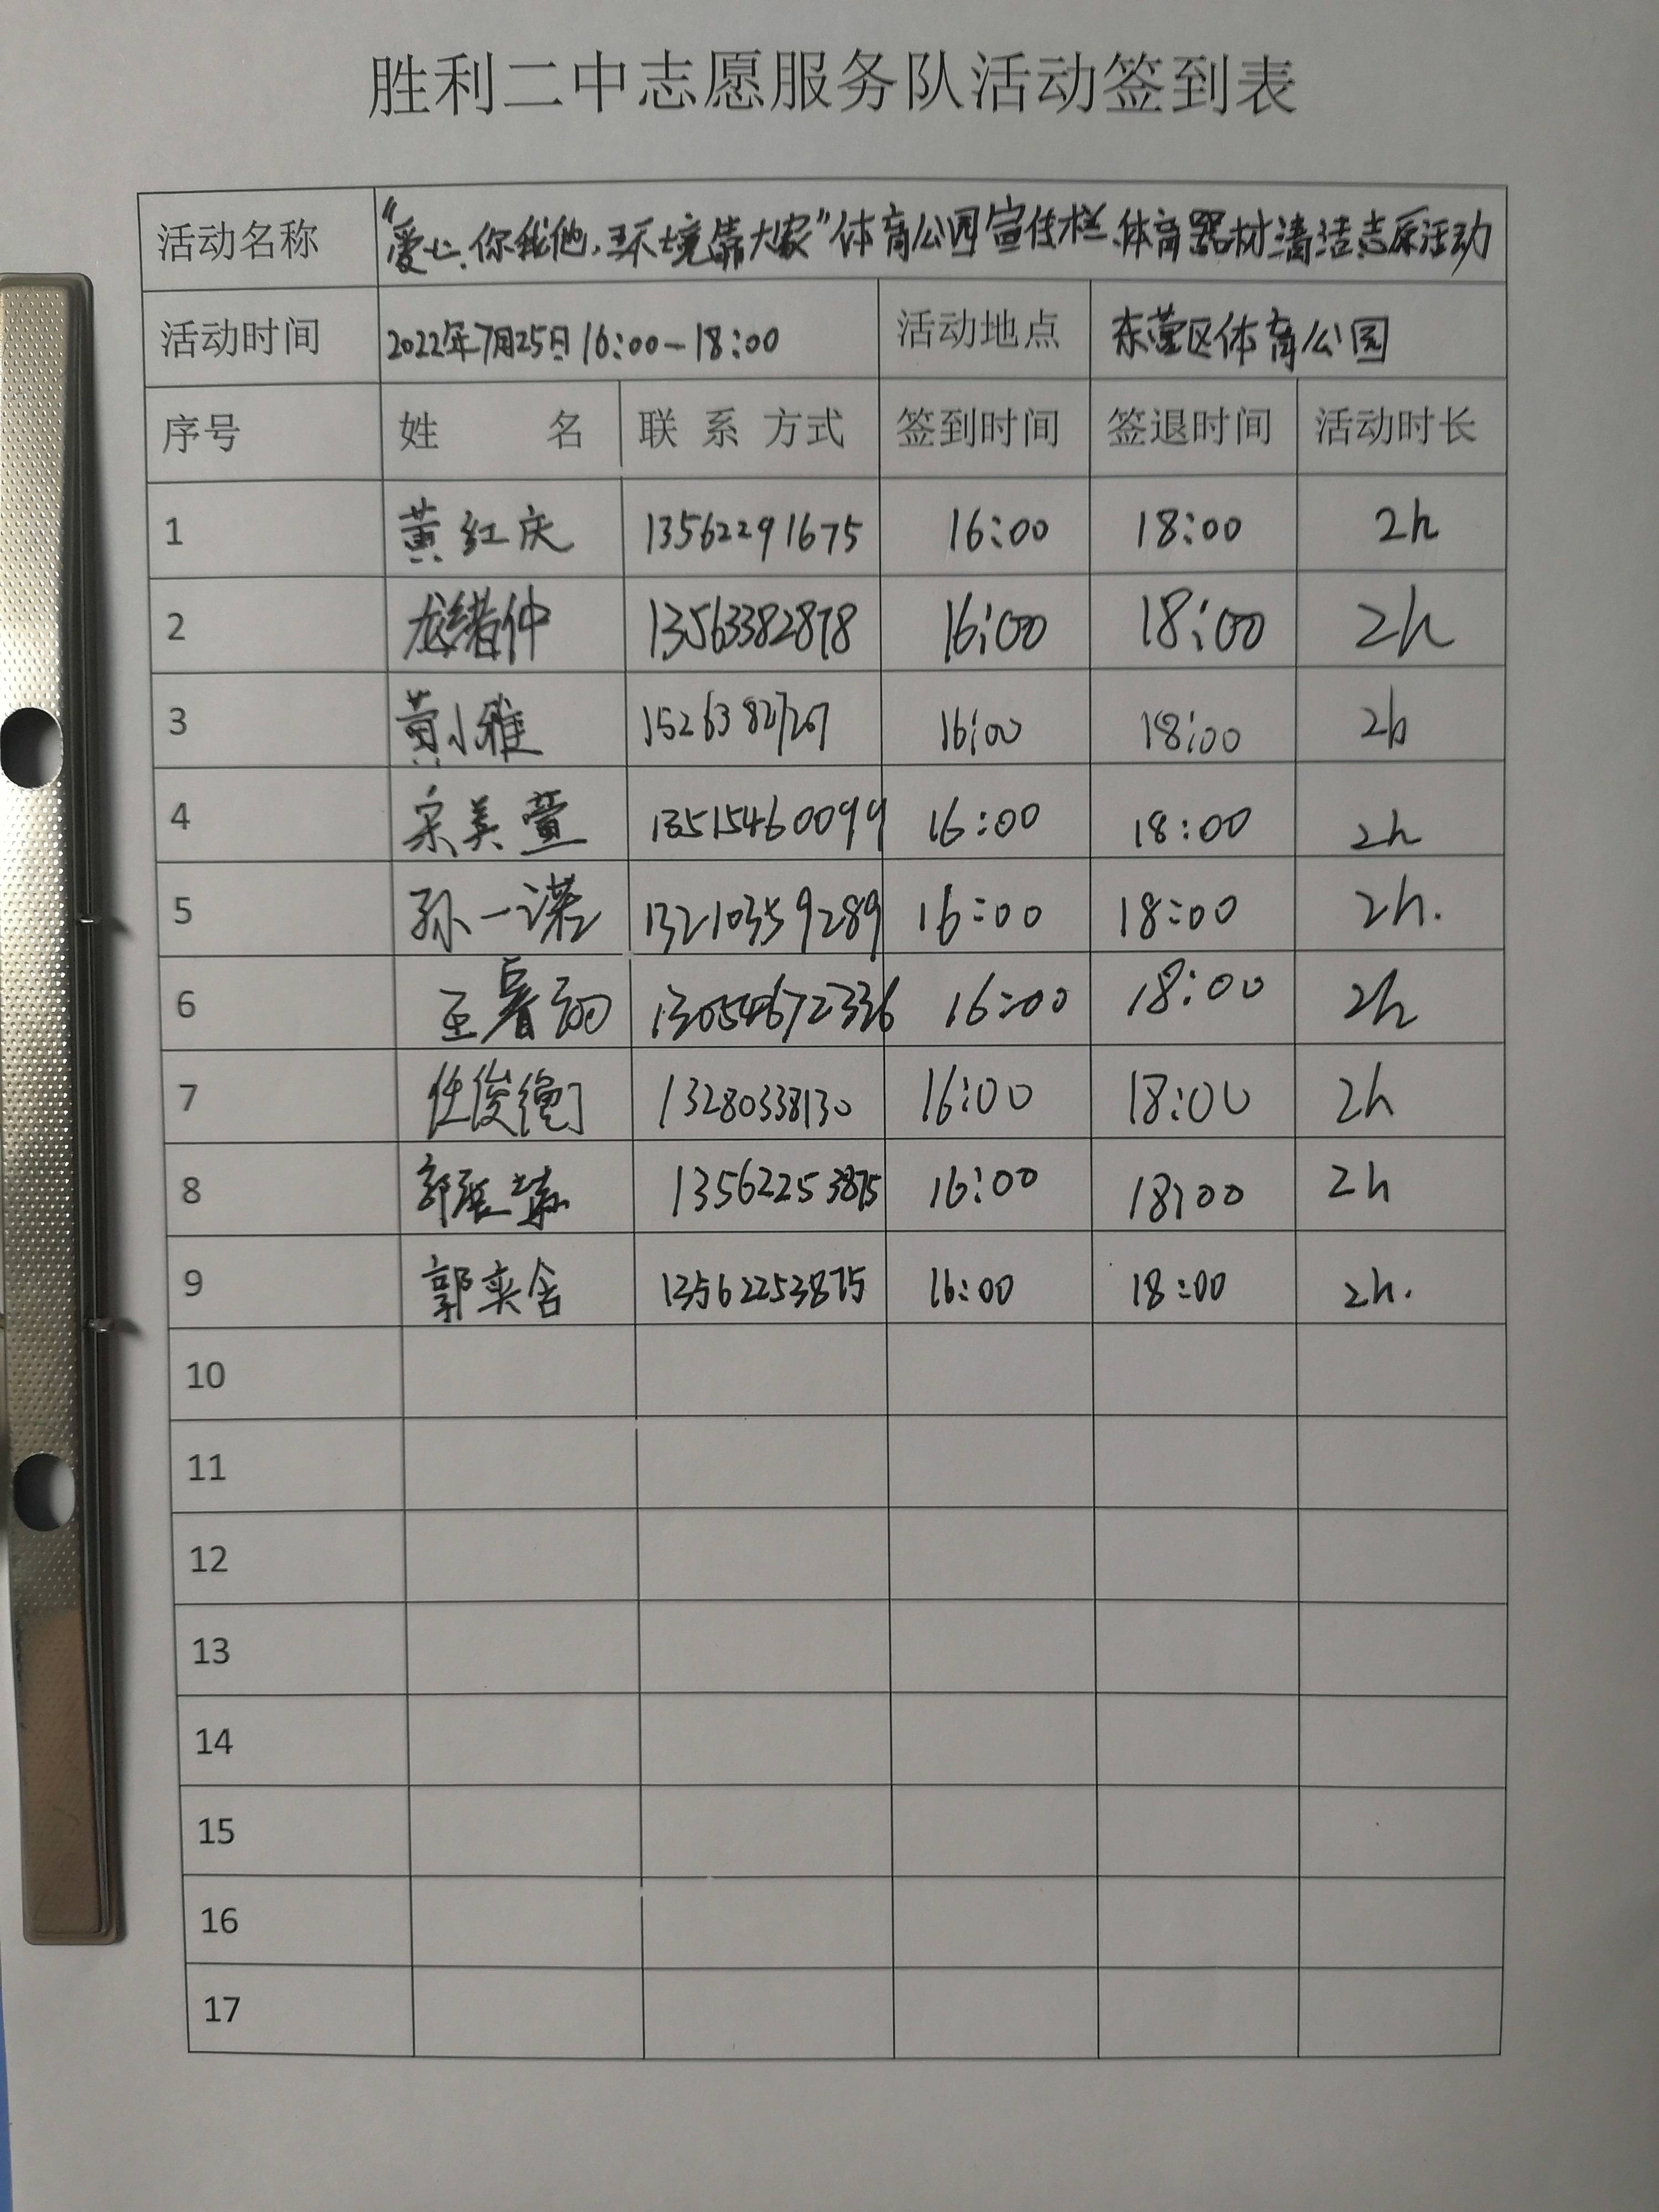 胜利二中志愿服务队活动签到表
活动名称 “爱心你我他,环境靠大家”体育公园宣传栏、体育器材清洁志愿活动
活动时间 2022年7月25日16:00-18:00 活动地点 东营区体育公园
序号 姓 名 联 系 方式 签到时间 签退时间 活动时长
1 黄红庆 13562291675 16:00 18:00 2h
2 龙绪仲 13563382878 16:00 18:00 2h
3 黄小雅 15263827267 16:00 18:00 2h
4 宋美萱 13515460099 16:00 18:00 2h
5 孙一诺 13210359289 16:00 18:00 2h.
6 13054672336 16:00 18:00 2h
7 任俊衡 13280338130 16:00 18:00 2h
8 13562253875 16:00 18:00 2h
9 郭奕含 13562253875 16:00 18:00 2h.
10
11
12
13
14
15
16
17